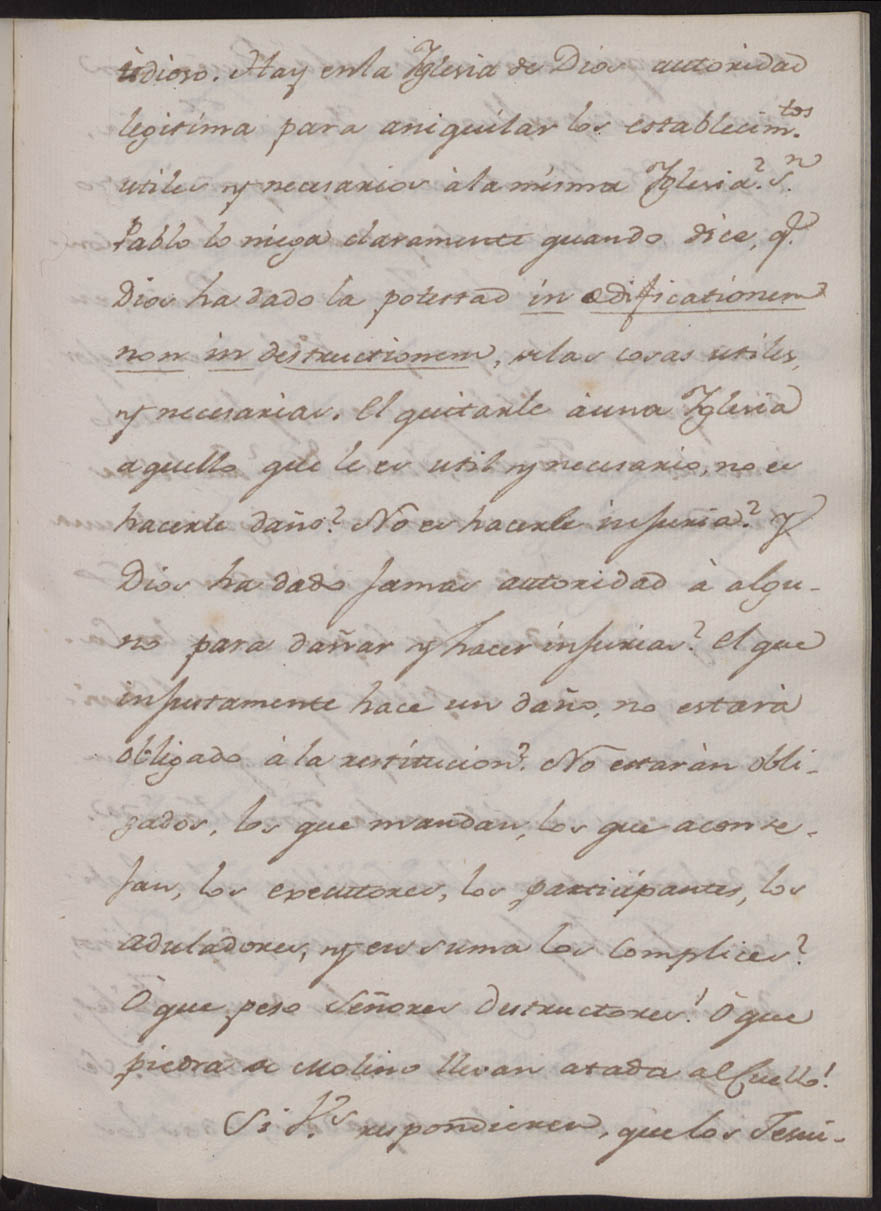 udioso. Hay en la Yglesia de Dios autoridad
legitima para aniquilar los establecim.tos
utiles y necesarios à la misma Yglesia? S.n
Pablo lo niega claramente quando dice, q.e
Dios ha dado la potestad in ædificationem
non in destructionem, de las cosas utiles,
y necesarias. El quitarle à una Yglesia
aquello que le es util y necesario, no es
hacerle daño? No es hacerle injuria? Y
Dios ha dado jamas autoridad à algu-
no para dañar y hacer injurias? El que
injustamente hace un daño, no estarà
obligado à la restitucion? No estaràn obli-
gados, los que mandan, los que aconse-
jan, los executores, los participantes, los
aduladores, y en suma los complices?
Ò que peso Señores destructores! Ò que
piedra de Molino llevan atada al Cuello!
Si V.s respondieren, que los Jesui-